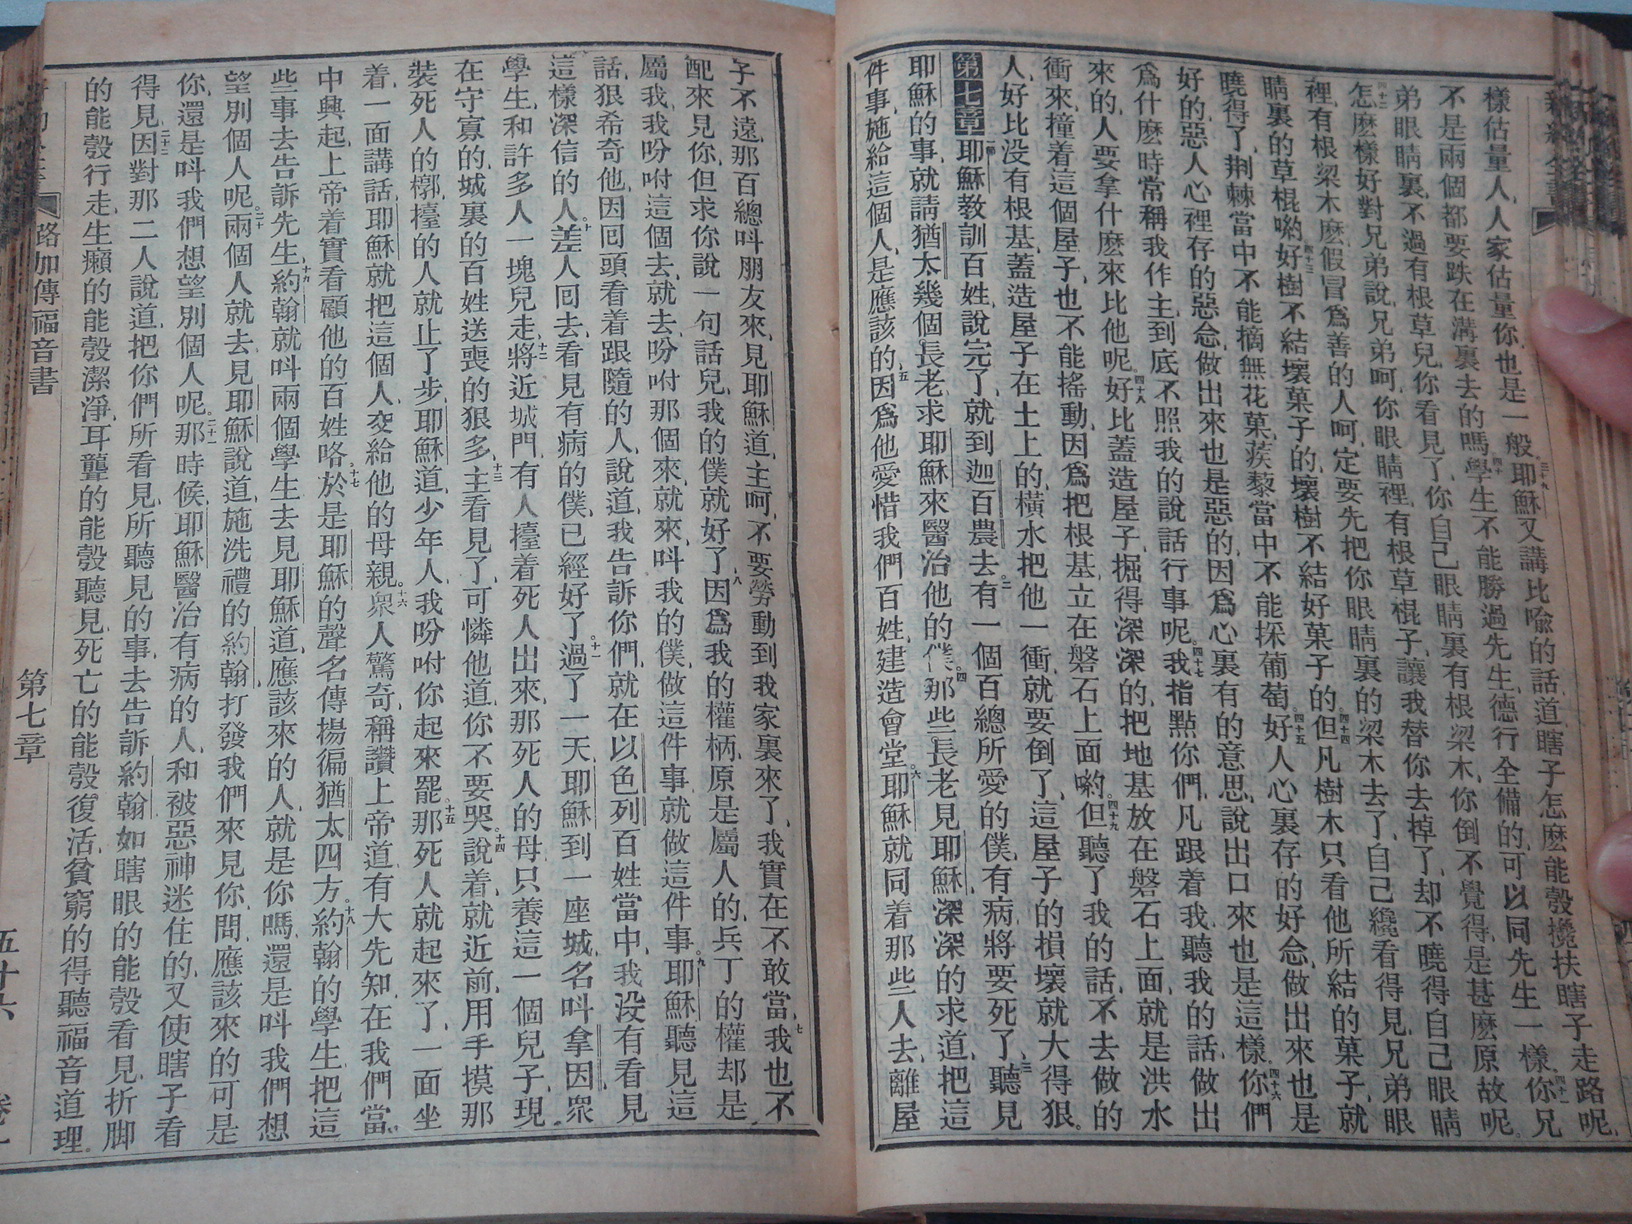 樣估量人人家估量你也是一般三十九耶穌又講比喻的話道瞎子怎麽能彀攙扶瞎子走路呢
不是兩個都要跌在溝裏去的嗎四十學生不能勝過先生德行全備的可以同先生一樣四十一你兄
弟眼睛裏不過有根草兒你看見了你自己眼睛裏有根梁木你倒不覺得是甚麽原故呢
四十二怎麽樣好對兄弟說兄弟呵你眼睛裡有根草棍子讓我替你去掉了却不曉得自己眼睛
裡有根梁木麽假冒爲善的人呵定要先把你眼睛裏的梁木去了自己纔看得見兄弟眼
睛裏的草棍喲四十三好樹不結壞菓子的壞樹不結好菓子的四十四但凡樹木只看他所結的菓子就
曉得了荆棘當中不能摘無花菓蒺藜當中不能採葡萄四十五好人心裏存的好念做出來也是
好的惡人心裡存的惡念做出來也是惡的因爲心裏有的意思說出口來也是這樣四十六你們
爲什麽時常稱我作主到底不照我的說話行事呢四十七我指點你們凡跟着我聽我的話做出
來的人要拿什麽來比他呢四十八好比蓋造屋子掘得深深的把地基放在磐石上面就是洪水
衝來撞着這個屋子也不能搖動因爲把根基立在磐石上面喲四十九但聽了我的話不去做的
人好比没有根基蓋造屋子在土上的橫水把他一衝就要倒了這屋子的損壞就大得狠
第七章一耶穌教訓百姓說完了就到迦百農去二有一個百總所愛的僕有病將要死了三聽見
耶穌的事就請猶太幾個長老求耶穌來醫治他的僕四那些長老見耶穌深深的求道把這
件事施給這個人是應該的五因爲他愛惜我們百姓建造會堂六耶穌就同着那些人去離屋
子不遠那百總呌朋友來見耶穌道主呵不要勞動到我家裏來了我實在不敢當七我也不
配來見你但求你說一句話兒我的僕就好了八因爲我的權柄原是屬人的兵丁的權却是
屬我我吩咐這個去就去吩咐那個來就來呌我的僕做這件事就做這件事九耶穌聽見這
話狠希奇他因回頭看着跟隨的人說道我告訴你們就在以色列百姓當中我没有看見
這樣深信的人十差人回去看見有病的僕已經好了十一過了一天耶穌到一座城名呌拿因衆
學生和許多人一塊兒走十二將近城門有人擡着死人出來那死人的母只養這一個兒子現
在守寡的城裏的百姓送喪的狠多十三主看見了可憐他道你不要哭十四說着就近前用手摸那
裝死人的槨擡的人就止了步耶穌道少年人我吩咐你起來罷十五那死人就起來了一面坐
着一面講話耶穌就把這個人交給他的母親十六衆人驚奇稱讚上帝道有大先知在我們當
中興起上帝着實看顧他的百姓咯十七於是耶穌的聲名傳揚徧猶太四方十八約翰的學生把這
些事去告訴先生十九約翰就呌兩個學生去見耶穌道應該來的人就是你嗎還是呌我們想
望別個人呢二十兩個人就去見耶穌說道施洗禮的約翰打發我們來見你問應該來的可是
你還是呌我們想望別個人呢二十一那時候耶穌醫治有病的人和被惡神迷住的又使瞎子看
得見二十二因對那二人說道把你們所看見所聽見的事去告訴約翰如瞎眼的能彀看見折脚
的能彀行走生癩的能彀潔淨耳聾的能彀聽見死亡的能彀復活貧窮的得聽福音道理
路加傳福音書 第七章 五十六